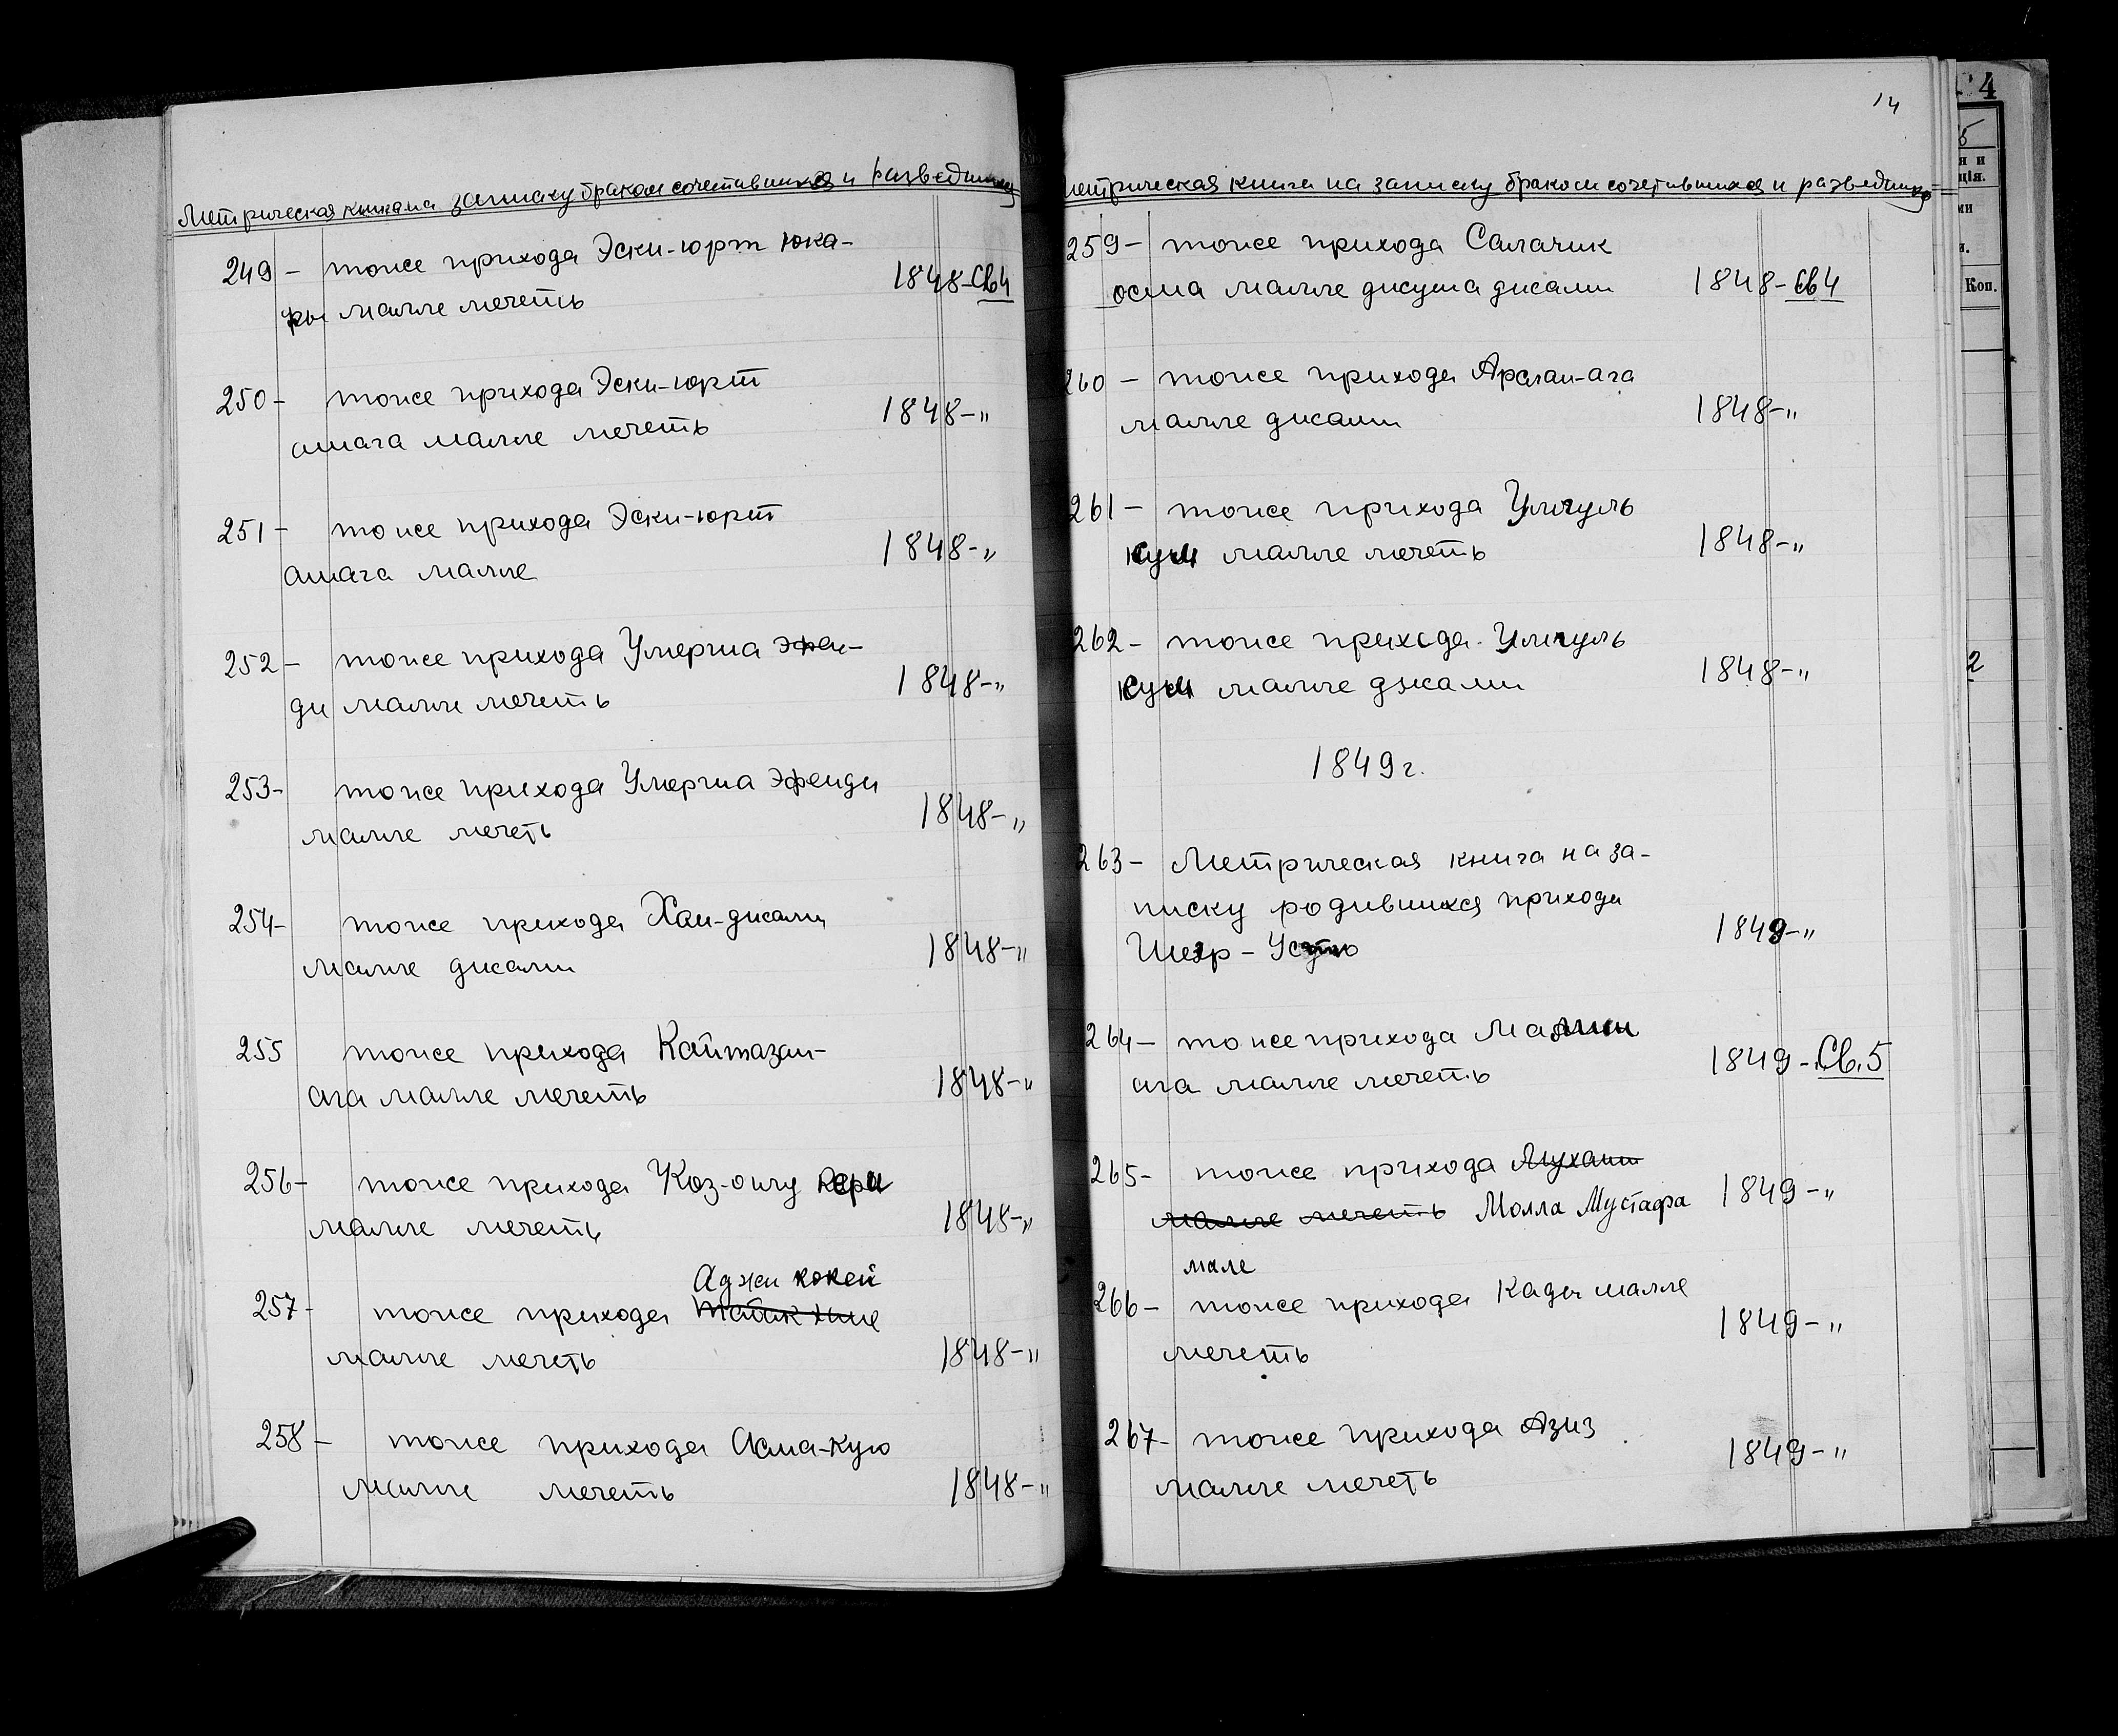 Метрическая книга на записку браком сочетавшихся и разведших
249 – тоже прихода Эски-юрт юка-
ры малле мечеть 1848-Св4
250 – тоже прихода Эски-юрт
ашага малле мечеть 1848-"
251 – тоже прихода Эски-юрт
ашага малле 1848-"
252 – тоже прихода Умерша эфен-
ди малле мечеть 1848-"
253- тоже прихода Умерша Эфенди
малле мечеть 1848-"
254- тоже прихода Хан-джами
малле джами 1848-"
255 тоже прихода Кайтазан-
ага малле мечеть 1848-"
256- тоже прихода Коз-оглу
малле мечеть 1848-"
Аджи кокей
257- тоже прихода
малле мечеть 1848-"
258 – тоже прихода Асма-кую
малле мечеть 1848-"
14
Метрическая книга на записку браком сочетавшихся и разведших
259 – тоже прихода Салачик
осма малле джума джами 1848-Св4
260 – тоже прихода Арслан-ага
малле джами 1848-"
261 – тоже прихода
малле мечеть 1848-"
262 – тоже прихода
малле джами 1848-"
1849 г.
263 – Метрическая книга на за-
писку родившихся прихода
Шегр – 1849-"
264 – тоже прихода
ага малле мечеть 1849-Св.5
265 – тоже прихода
малле мечеть Молла Мустафа 1849-"
мале
266 – тоже прихода Кады малле
мечеть 1849-"
267 – тоже прихода Азиз
малле мечеть 1849-"
4
Коп.
2